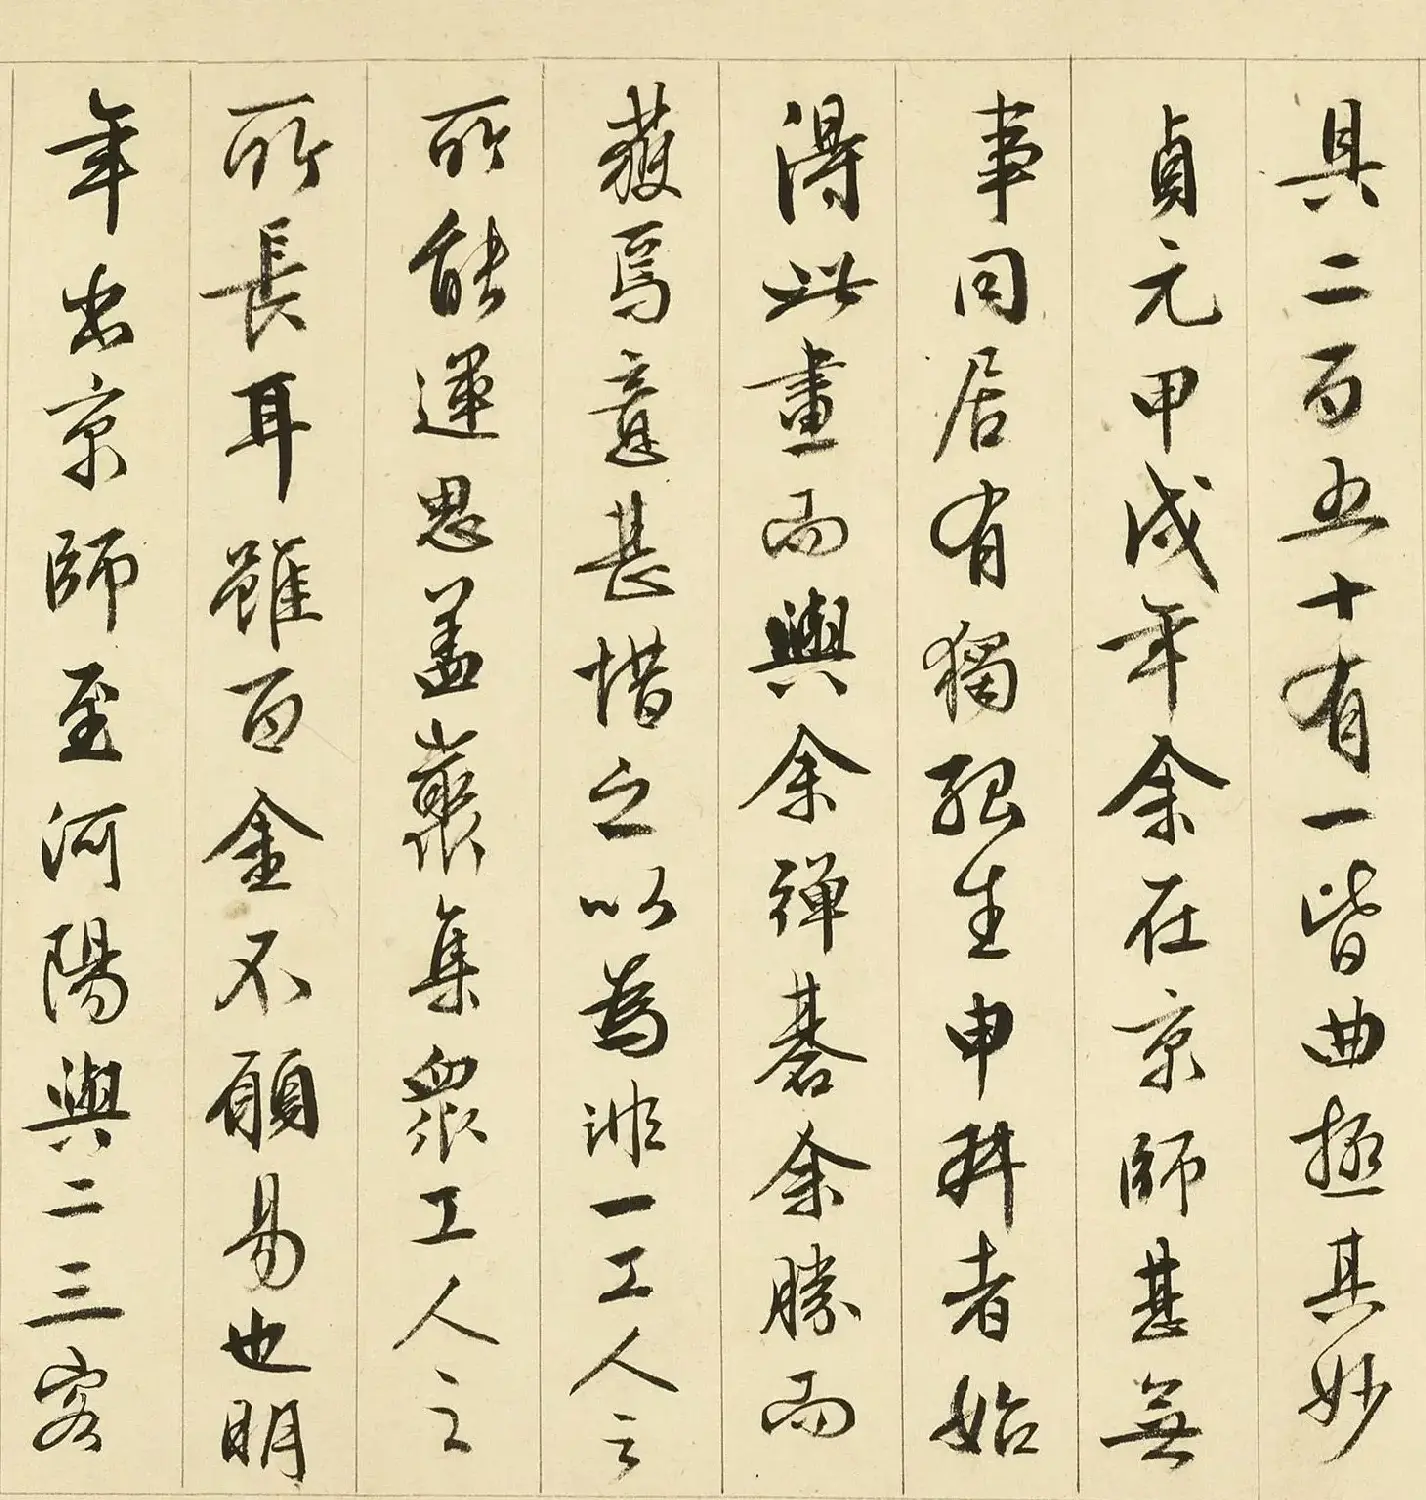 具二百五十有一皆曲極其妙
貞元甲戌年余在京師甚無
事同居有獨孤生申叔者始
得此畫而與余彈碁余勝而
獲焉意甚惜之以為非一工人之
所能運思蓋叢集眾工人之
所長耳雖百金不願易也明
年出京師至河陽與二三客